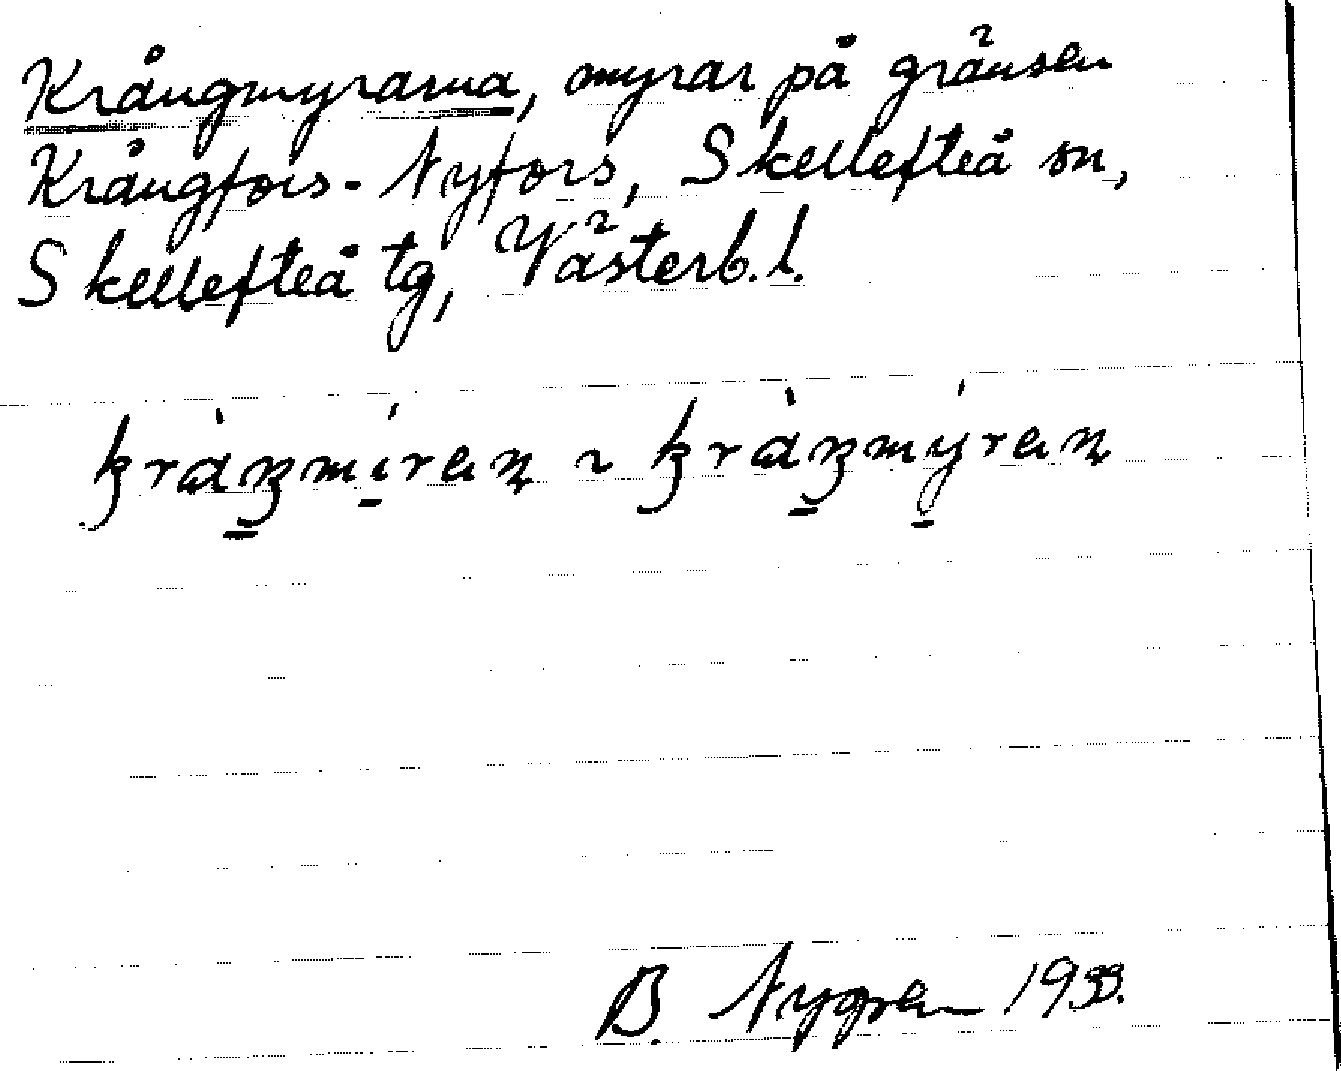 Krångmyrarna, myrar på gränsen
Krångfors-Nyfors, Skellefteå sn,
Skellefteå tg, Västerb. l.
B. Nygren 1933.